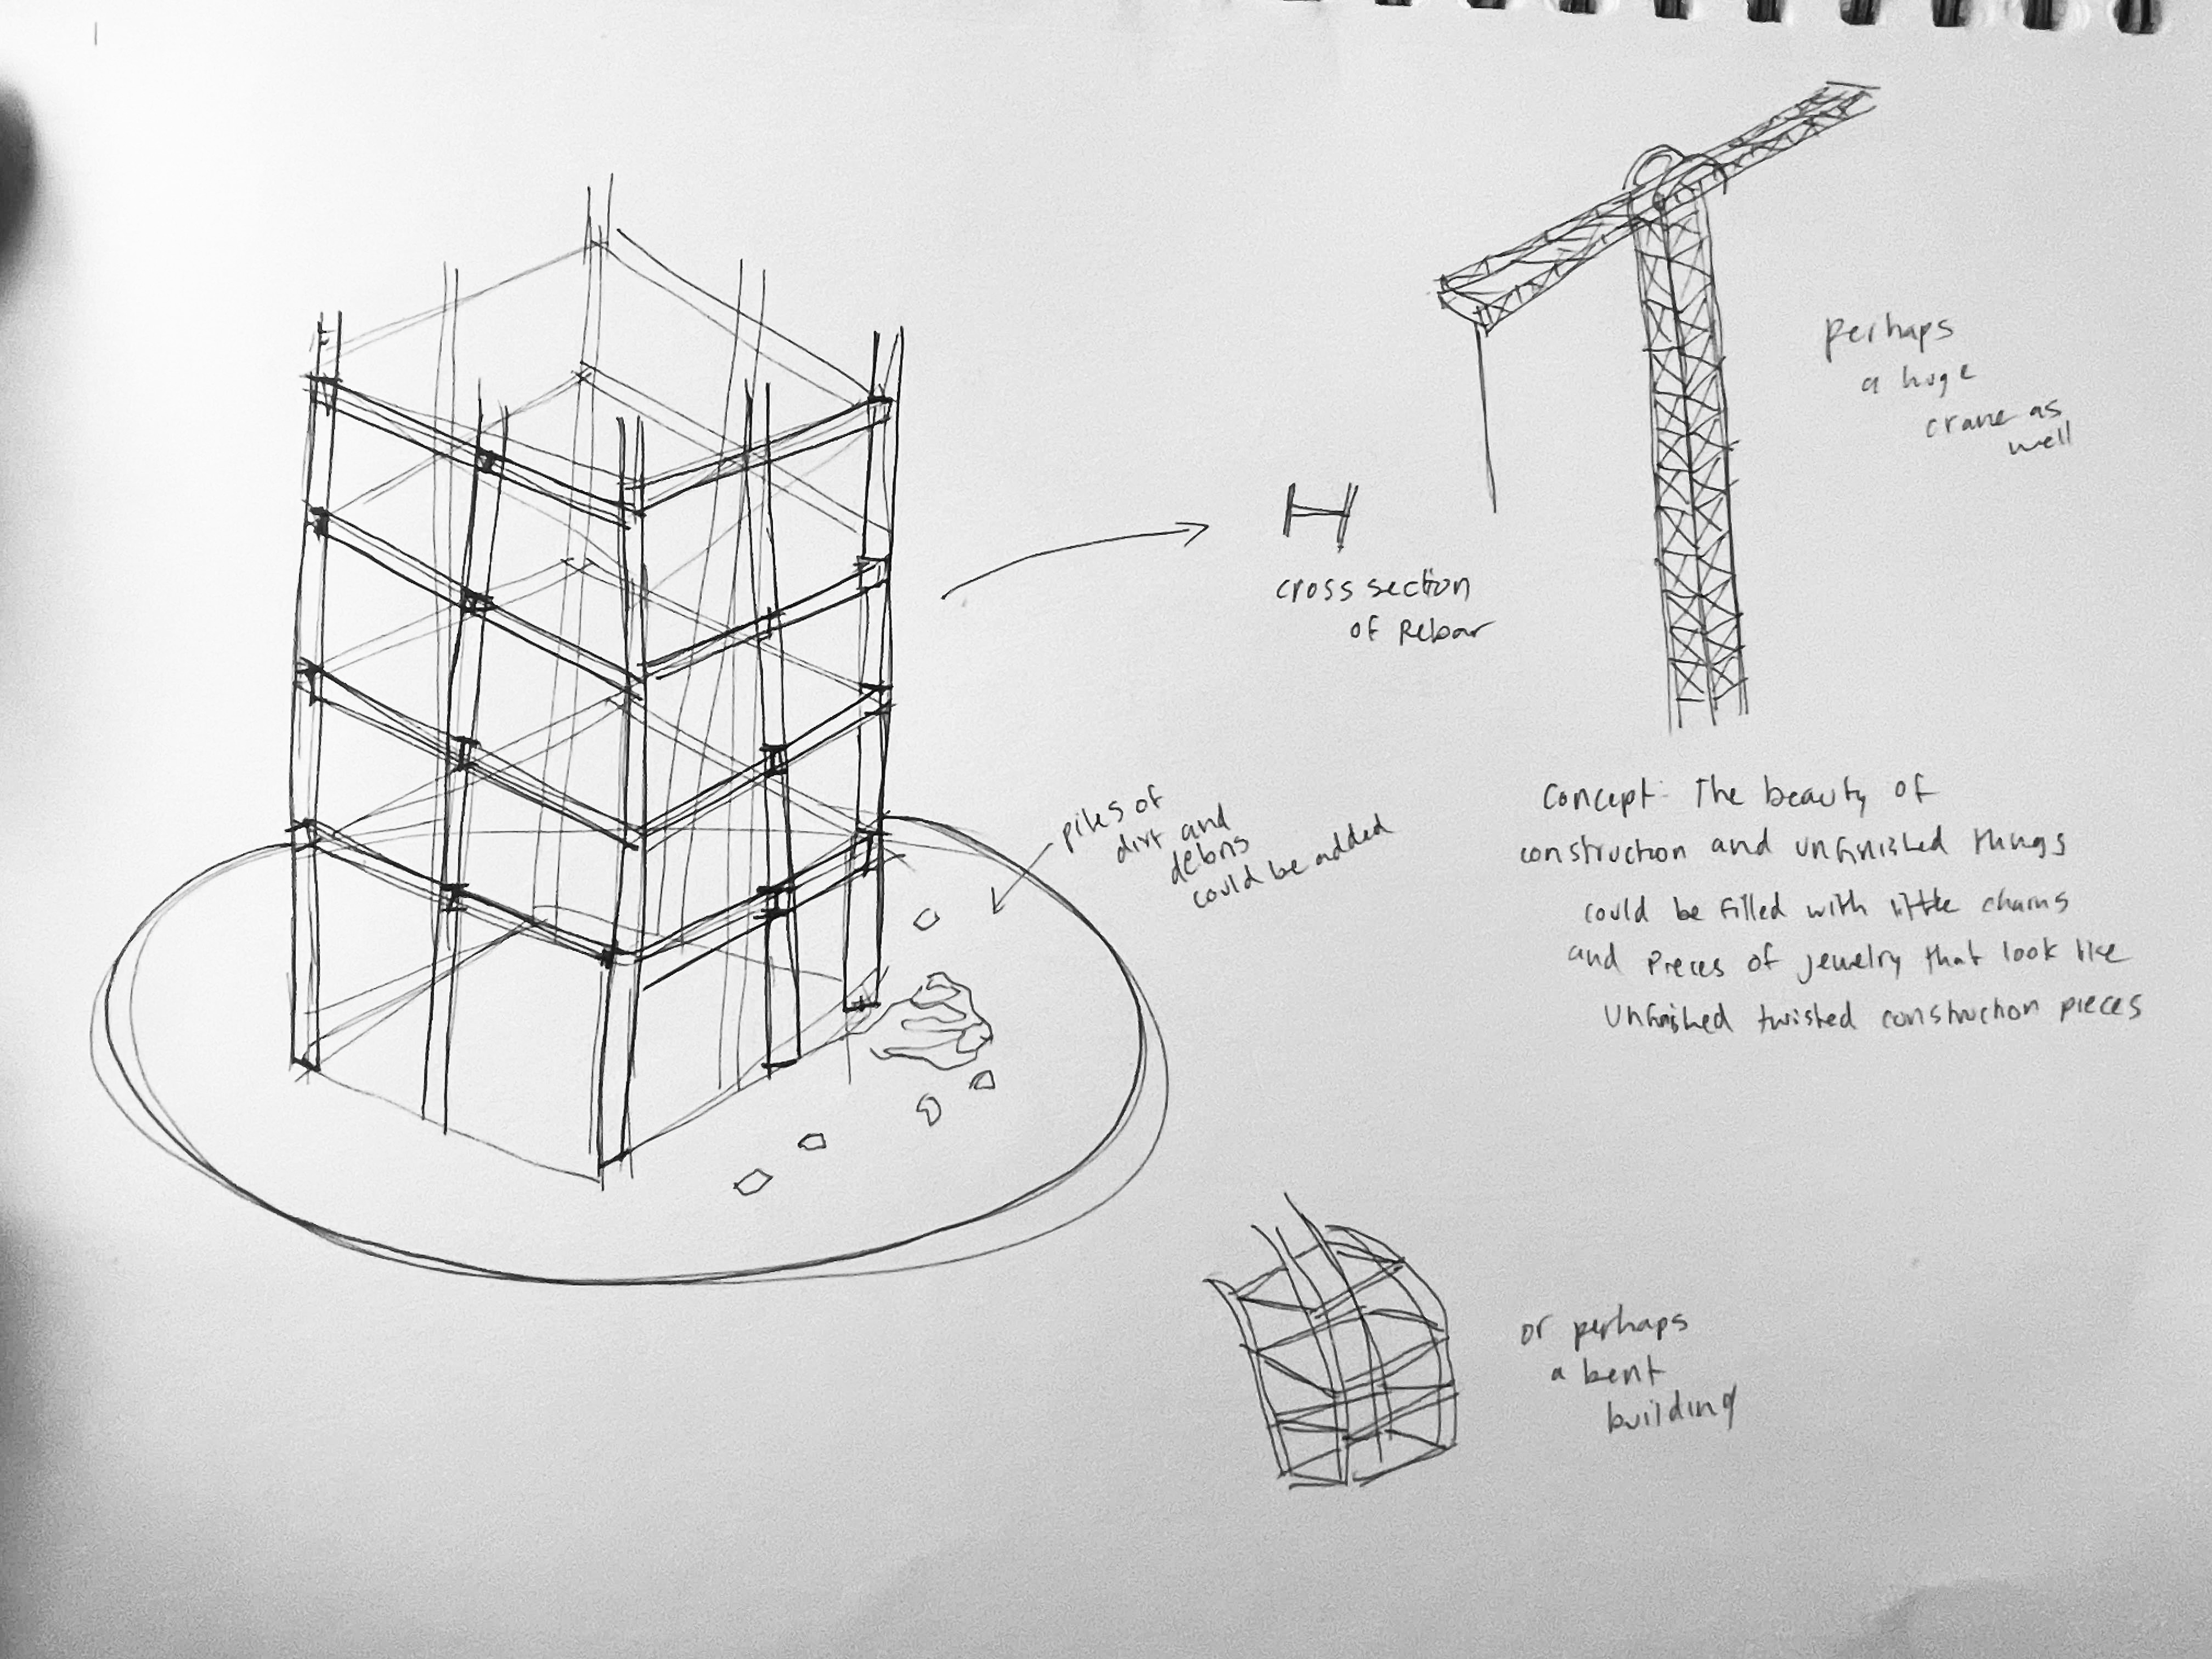 perhaps
a huge
crane as
well
cross section
of Rebar
piles of
dirt and
debris
could be added
Concept: The beauty of
construction and unfinished things
could be filled with little chains
and pieces of jewelry that look like
unfinished twisted construction pieces
or perhaps
a bent
building